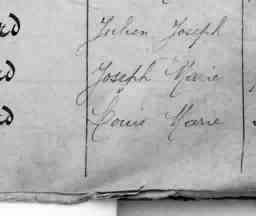 rd Julien Joseph
rd Joseph Marie
rd Louis Marie